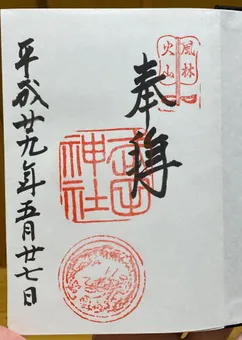 風林
火山
奉拝
武田
神社
平成廿九年五月廿七日